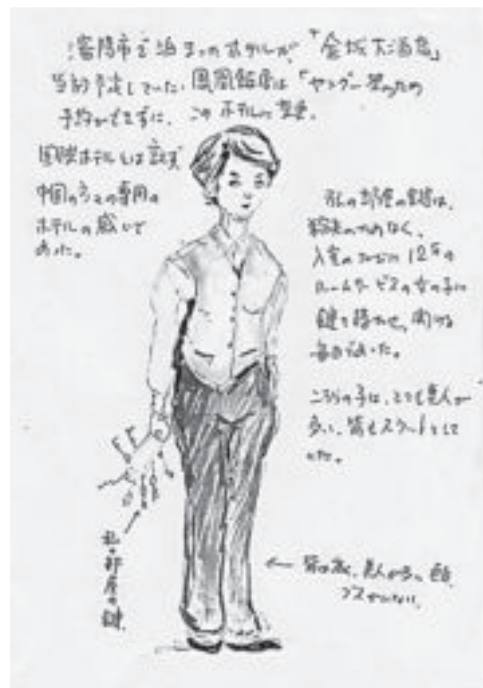 瀋陽市で泊まったホテルが、「金城大酒店」
当初予定していた、鳳凰飯店は
予約ができずに、このホテルに変更。
国際ホテルとは言えず
中国の方々の専用の
ホテルの感じで
あった。
私の部屋の
入室のたびに12Fの
ルームサービスの女の子に
鍵を持たせ、開ける
毎日であった。
こちらの子は、とても美人が
多い、皆もスラーっとして
いた。
私の部屋の鍵
← 美人が多い